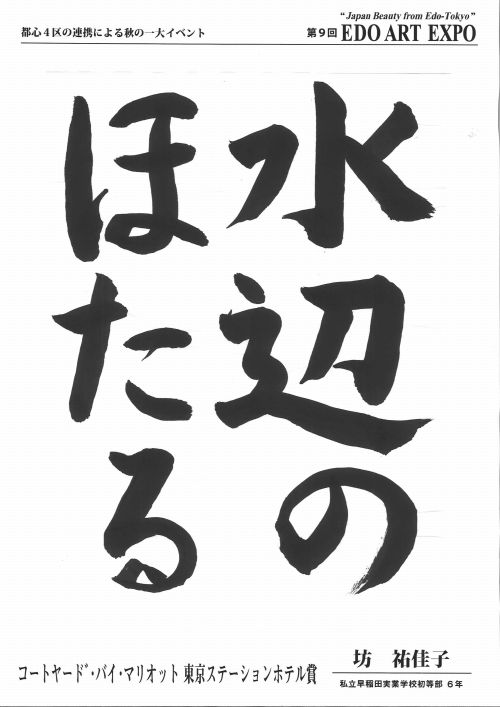 都心4区の連携による秋の一大イベント
"Japan Beauty from Edo-Tokyo"
第9回 EDO ART EXPO
水辺の
ほたる
コートヤード・バイ・マリオット 東京ステーションホテル賞
坊 祐佳子
私立早稲田実業学校初等部 6年